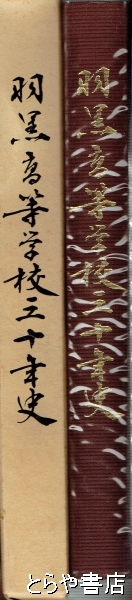 羽黒高等学校三十年史
羽黒高等学校三十年史
とらや書店